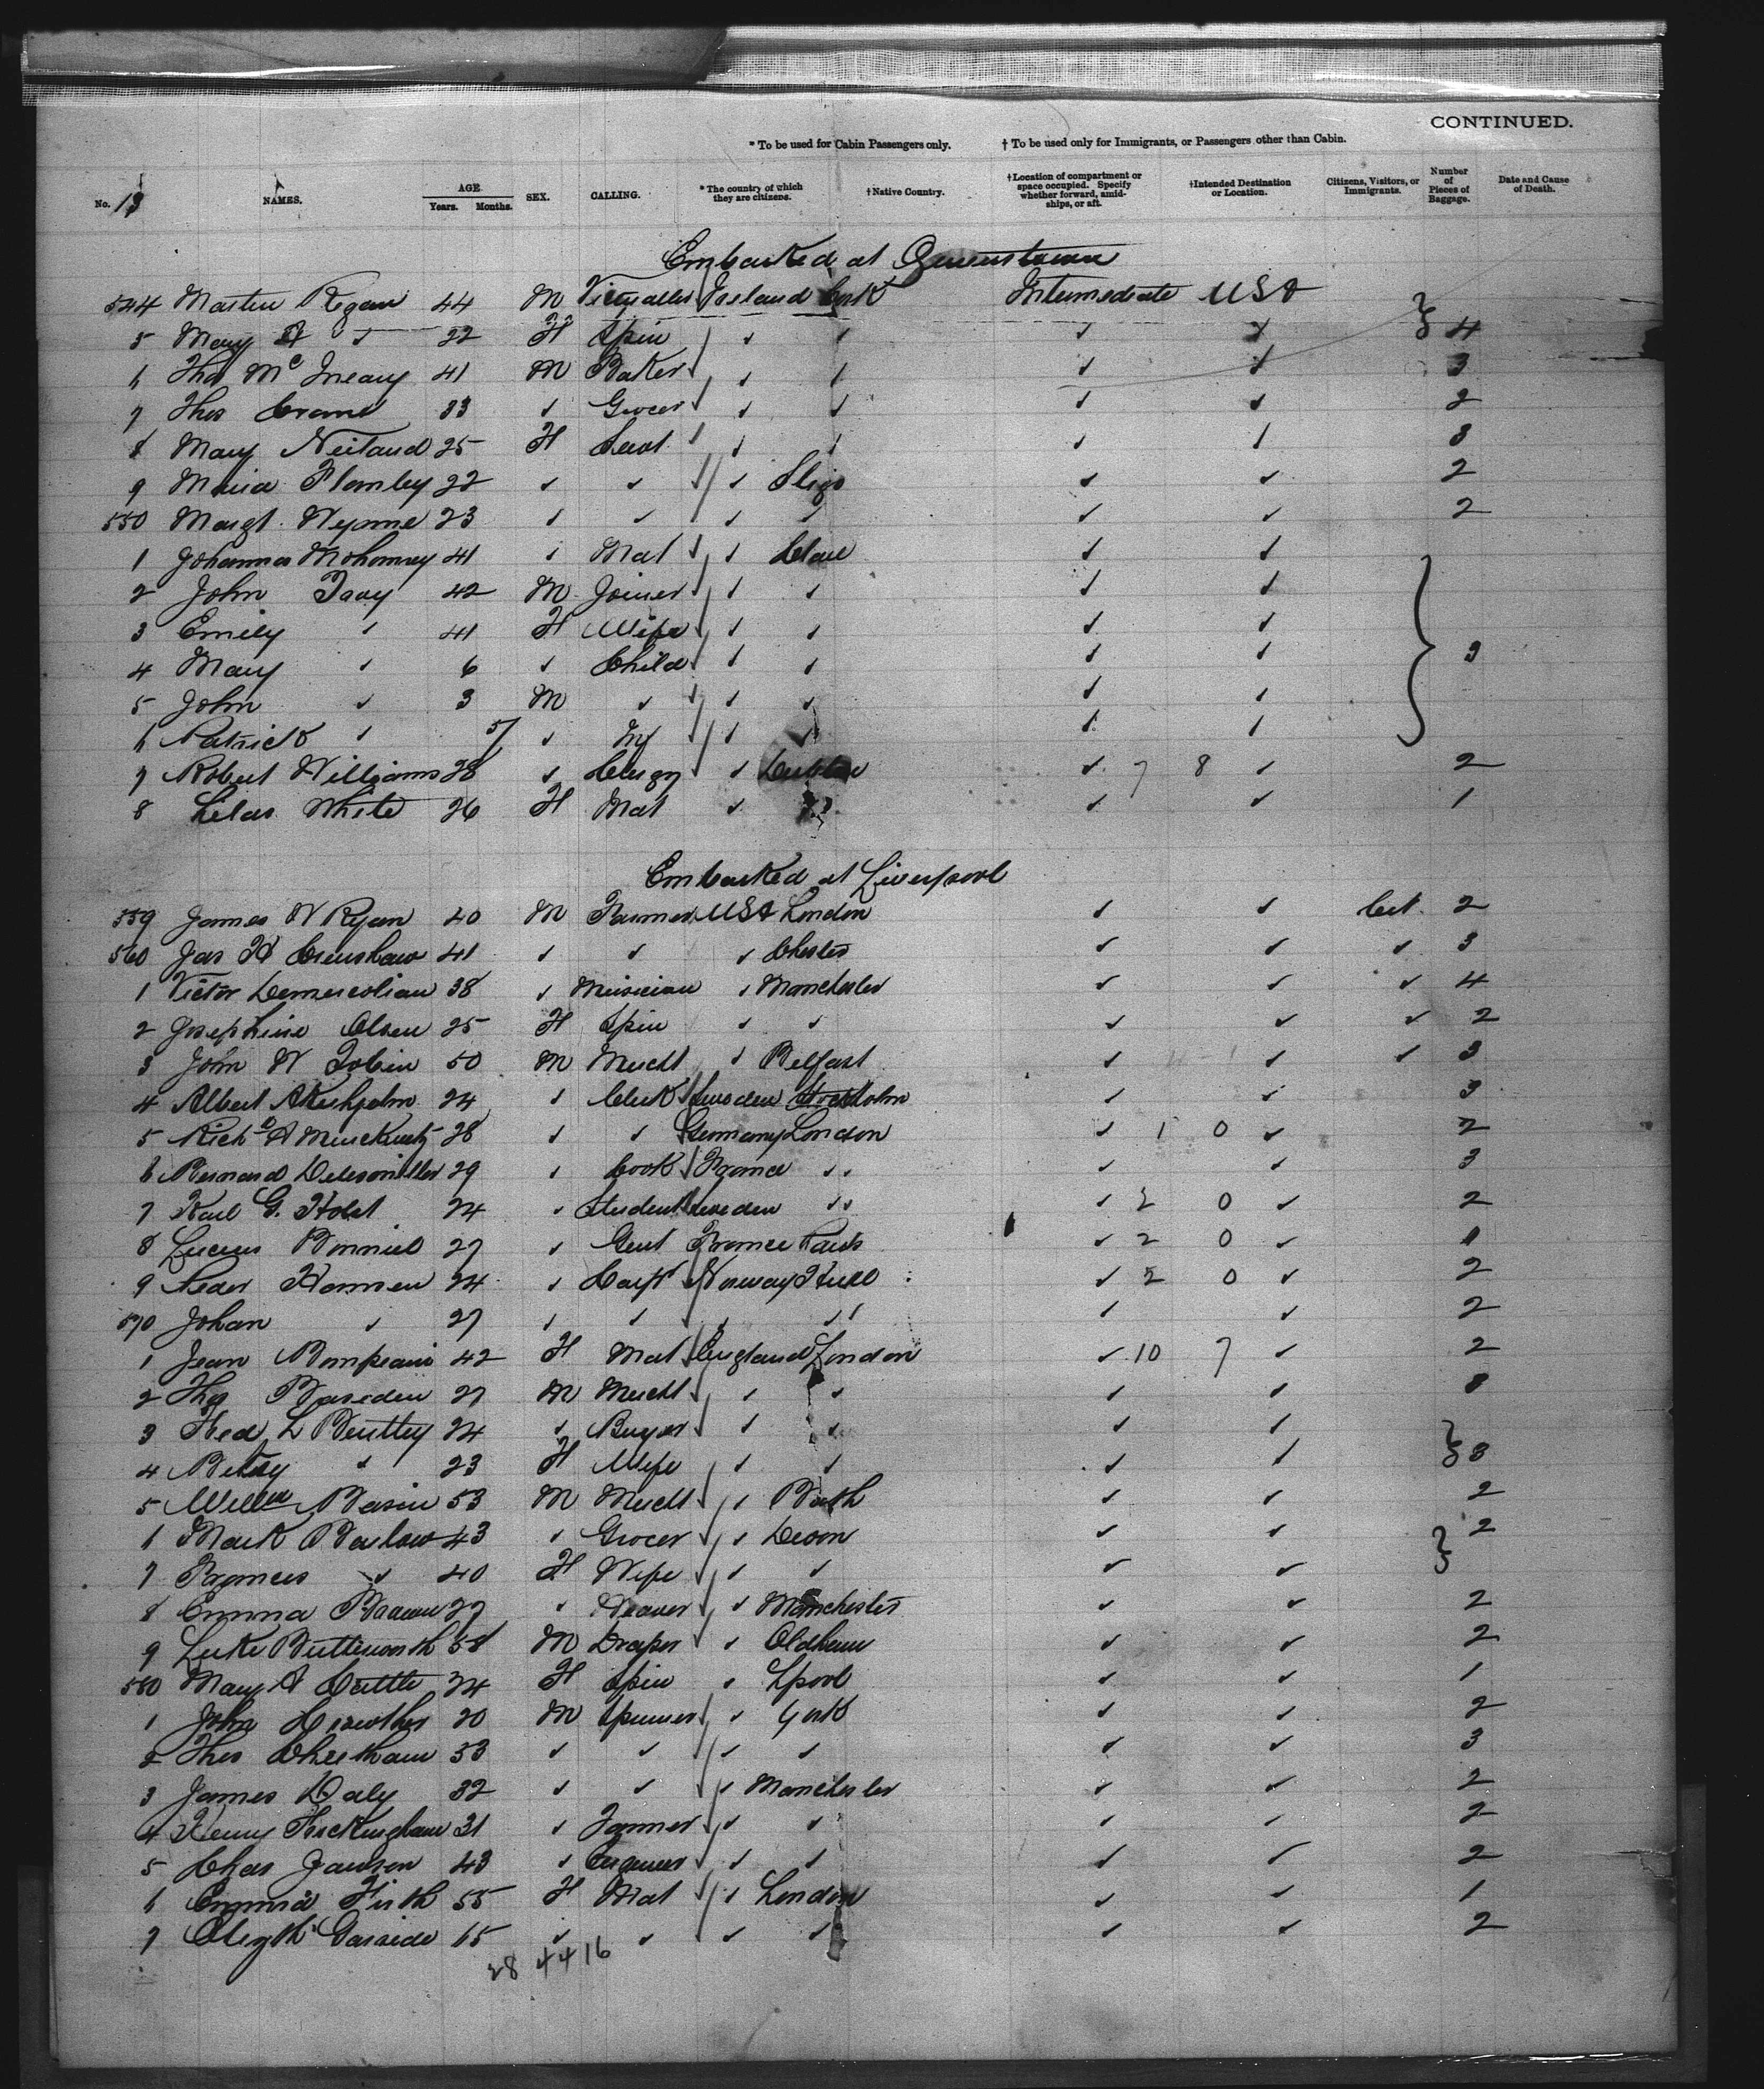 CONTINUED.
* To be used for Cabin Passengers only. † To be used only for Immigrants, or Passengers other than Cabin.
No. 13 NAMES. AGE Years. Months. SEX. CALLING. * The country of which they are citizens. † Native Country. † Location of compartment or space occupied. Specify whether forward, amidships, or aft. † Intended Destination or Location. Citizens, Visitors, or Immigrants. Number of Pieces of Baggage. Date and Cause of Death.
Embarked at Queenstown
544 Martin Regan 44 M Victualler Ireland Cork Intermediate USA
5 Mary A ✓ 22 F Spin ✓ ✓ ✓ ✓ } 4
6 Thos Mc 41 M Baker ✓ ✓ ✓ ✓ 3
7 Thos 33 ✓ Grocer ✓ ✓ ✓ ✓ 2
8 Mary Neiland 25 F Servt ✓ ✓ ✓ ✓ 3
9 Maria 22 ✓ ✓ ✓ Sligo ✓ ✓ 2
550 Margt. Wynne 23 ✓ ✓ ✓ ✓ ✓ ✓ 2
1 Johanna Mohoney 41 ✓ Mat ✓ Clare ✓ ✓
2 John 42 M Joiner ✓ ✓ ✓ ✓
3 Emily ✓ 41 F Wife ✓ ✓ ✓ ✓
4 Mary ✓ 6 ✓ Child ✓ ✓ ✓ ✓ } 3
5 John ✓ 3 M ✓ ✓ ✓ ✓ ✓
6 Patrick ✓ 5/ ✓ Inf ✓ ✓ ✓ ✓
7 Robert Williams 28 ✓ Clergy ✓ Dublin ✓ 7 8 ✓ 2
8 Lilas White 26 F Mat ✓ ✓ ✓ 1
Embarked at Liverpool
559 James W Ryan 40 M Farmer USA London ✓ ✓ Cit. 2
560 Jas H Crenshaw 41 ✓ ✓ ✓ Chester ✓ ✓ ✓ 3
1 Victor 38 ✓ Musician ✓ Manchester ✓ ✓ ✓ 4
2 Josephine Olsen 25 F Spin ✓ ✓ ✓ ✓ ✓ 2
3 John W Tobin 50 M Mercht ✓ Belfast ✓ ✓ ✓ 3
4 Albert 24 ✓ Clerk Sweden Stockholm ✓ ✓ 3
5 Richd A 28 ✓ ✓ Germany London ✓ 1 0 ✓ 2
6 Bernard 29 ✓ Cook France ,, ✓ ✓ 3
7 Karl G. Holst 24 ✓ Student Sweden ,, ✓ 2 0 ✓ 2
8 Lucien 27 ✓ Gent France Paris ✓ 2 0 ✓ 1
9 Peder Hansen 24 ✓ Carpr Norway Hull ✓ 2 0 ✓ 2
570 Johan ✓ 27 ✓ ✓ ✓ ,, ✓ ✓ 2
1 Jean 42 F Mat England London ✓ 10 7 ✓ 2
2 Thos 27 M Mercht ✓ ✓ ✓ ✓ 8
3 Fred L Bentley 24 ✓ Buyer ✓ ✓ ✓ ✓
4 Betsy ✓ 23 F Wife ✓ ✓ ✓ ✓ } 3
5 Willm 53 M Mercht ✓ Bath ✓ ✓ 2
6 Mark Barlow 43 ✓ Grocer ✓ Devon ✓ ✓ } 2
7 Frances ✓ 40 F Wife ✓ ✓ ✓ ✓
8 Emma 27 ✓ Weaver ✓ Manchester ✓ ✓ 2
9 Luke Butterworth 58 M Draper ✓ Oldham ✓ ✓ 2
580 Mary A Cuttle 24 F Spin ✓ Lpool ✓ ✓ 1
1 John 20 M Spinner ✓ York ✓ ✓ 2
2 Thos Cheetham 33 ✓ ✓ ✓ ✓ ✓ ✓ 3
3 James Daly 32 ✓ ✓ ✓ Manchester ✓ ✓ 2
4 Henry 31 ✓ Farmer ✓ ✓ ✓ ✓ 2
5 Chas 43 ✓ Engineer ✓ ✓ ✓ ✓ 2
6 Emma Firth 55 F Mat ✓ London ✓ ✓ 1
7 Garside 65 ✓ ✓ ✓ ✓ ✓ ✓ 2
28 44 16